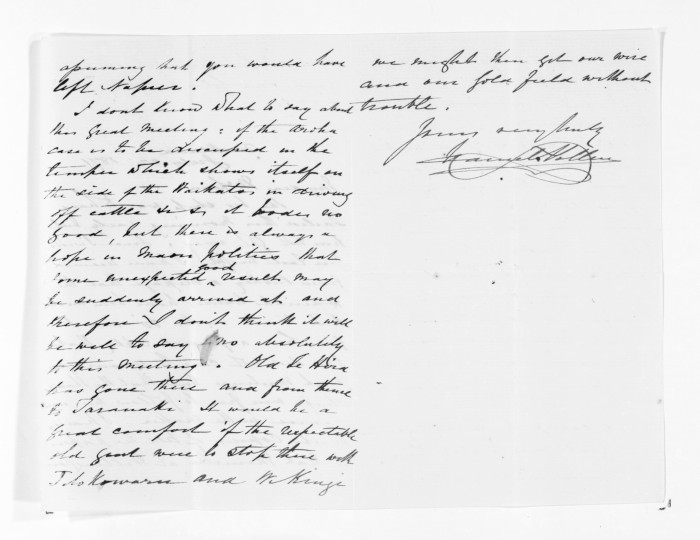 assuming that you would have
left Napier.
I dont know what to say about
this Great Meeting: if the Aroha
case is to be discussed in the
temper which shows itself on
the side of the Waikatos in driving
off cattle &c &c it bodes no
good, but there is always a
hope in Maori politics that
some unexpected good result may
be suddenly arrived at and
therefore I dont think it will
be well to say no absolutely
to this meeting. Old Te Hira
has gone there and from thence
to Taranaki. It would be a
great comfort if the respectable
old gent were to stop there with
Titokowaru and W. Kingi
we might then get our wire
and our Gold field without
trouble.
Yours very truly
Daniel Pollen